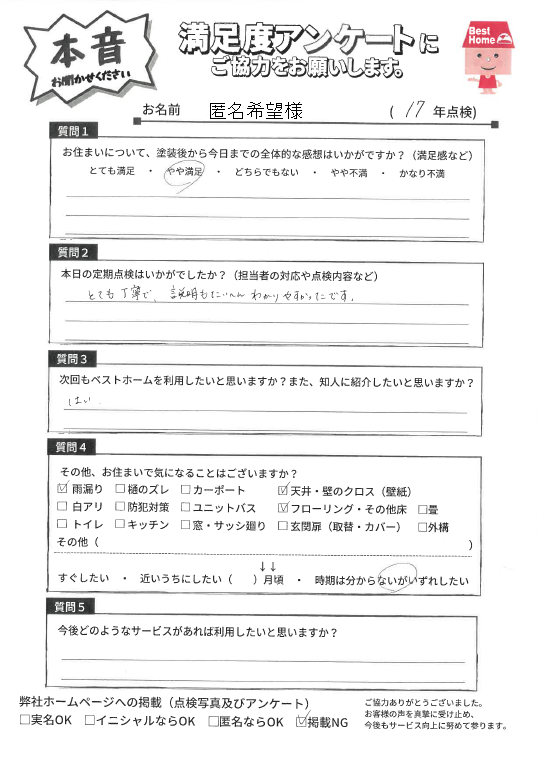 本音
お聞かせください
満足度アンケートに
ご協力をお願いします。
Best
Home
お名前 匿名希望様 ( 17 年点検)
質問1
お住まいについて、塗装後から今日までの全体的な感想はいかがですか？（満足感など）
とても満足 ・ やや満足 ・ どちらでもない ・ やや不満 ・ かなり不満
質問2
本日の定期点検はいかがでしたか？（担当者の対応や点検内容など）
とても丁寧で、説明もたいへんわかりやすかったです。
質問3
次回もベストホームを利用したいと思いますか？また、知人に紹介したいと思いますか？
はい.
質問4
その他、お住まいで気になることはございますか？
☑雨漏り □樋のズレ □カーポート ☑天井・壁のクロス（壁紙）
□白アリ □防犯対策 □ユニットバス ☑フローリング・その他床 □畳
□トイレ □キッチン □窓・サッシ廻り □玄関扉（取替・カバー） □外構
その他（ ）
↓↓
すぐしたい ・ 近いうちにしたい（ ）月頃 ・ 時期は分からないがいずれしたい
質問5
今後どのようなサービスがあれば利用したいと思いますか？
弊社ホームページへの掲載（点検写真及びアンケート）
□実名OK □イニシャルならOK □匿名ならOK ☑掲載NG
ご協力ありがとうございました。
お客様の声を真摯に受け止め、
今後もサービス向上に努めて参ります。